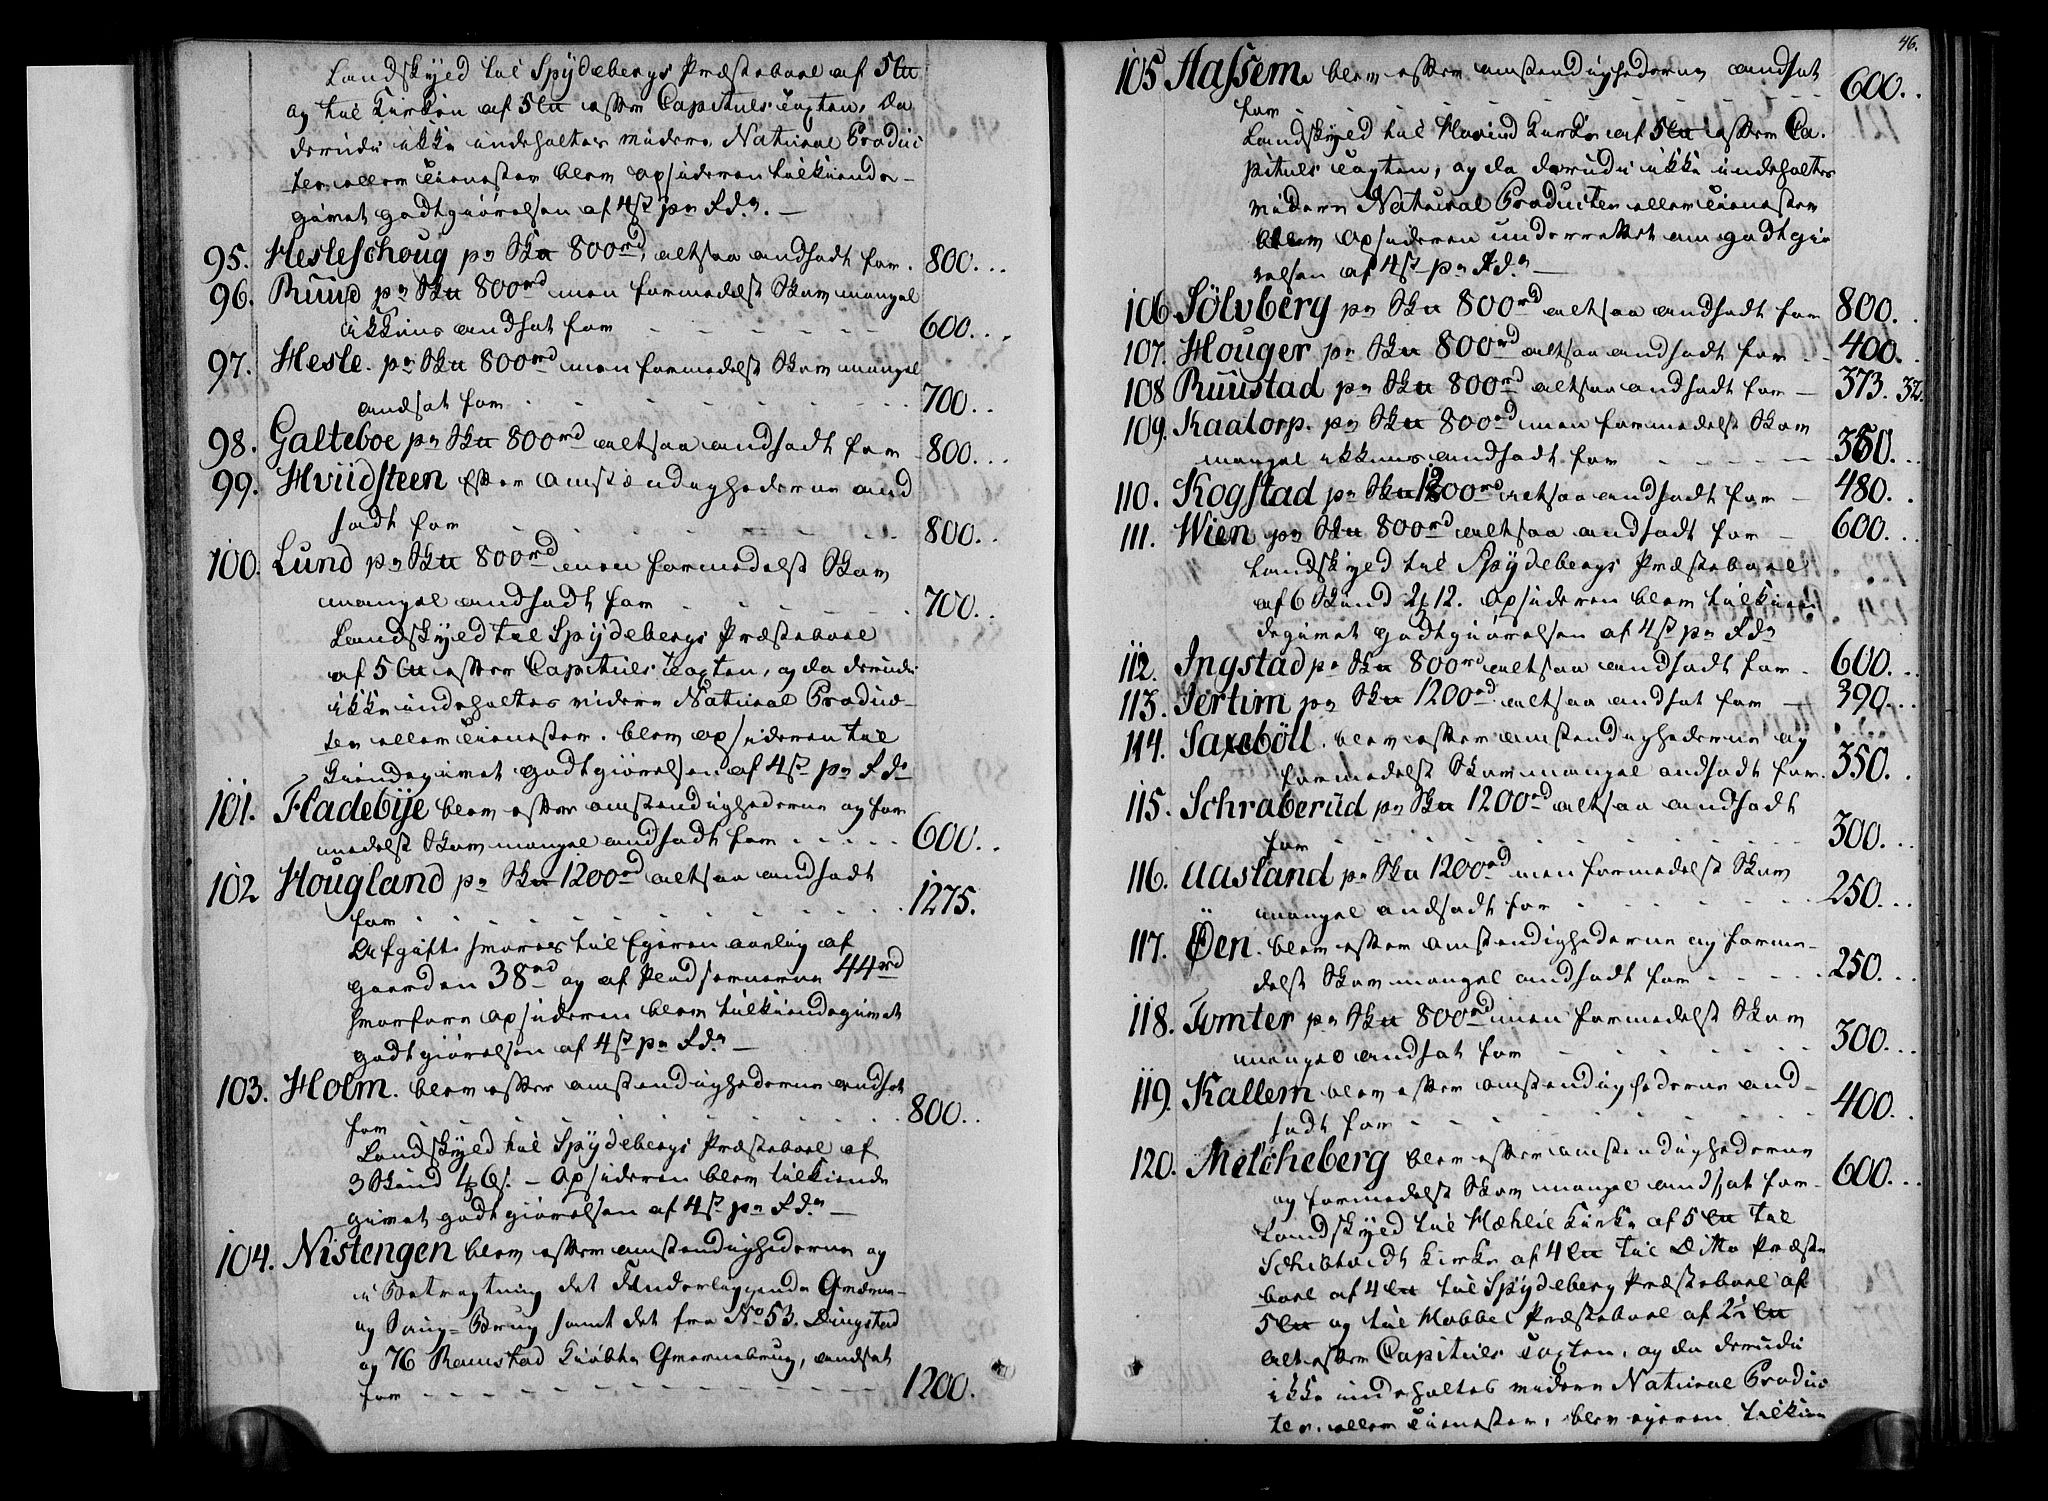 Landskyld til Spydebergs Præsteboel af 5 lu
og til Kirken af 5 lu efter Capituls Taxten, da
derudi ikke indeholtes videre Natural Produc
ter eller Tienester blev Opsideren tilkiende-
givet godtgiørelsen af 4 st pr Rd.r. —
95. Hesleschoug pr Sku 800 rd altsaa andsadt for. 800...
96. Ruud pr Sku 800 rd men formedelst Skov mangel
ikkuns andsat for - - - - - - 600...
97. Hesle. pr Sku 800 rd men formedelst Skov mangel
andsat for - - - - - - - 700...
98. Galteboe pr Sku 800 rd altsaa andsadt for 800...
99. Hviidsteen Efter omstændighederne and
sadt for - - - - - - 800...
100. Lund pr Sku 800 rd men formedelst Skov
mangel andsadt for - - - - - 700...
Landskyld til Spydebergs Præsteboel
af 5 lu efter Capituls Taxten, og da derudi
ikke indeholtes videre Natural Produc-
ter eller Tienester. blev Opsideren til
kiendegivet godtgiørelsen af 4 st pr Rdr
101. Fladebÿe blev efter omstendighederne og for
medelst Skov mangel andsadt for - - - - 600...
102 Hougland pr Sku 1200 rd altsaa andsadt
for - - - - - - - - - 1275.
Afgift svares til Eyeren aarlig af
gaarden 38 rd og af Pladserne 44 rd
hvorfore Opsideren blev tilkiendegivet
godtgiørelsen af 4 st pr Rd.r —
103. Holm. blev efter omstendighederne andsat
for - - - - - - - - - 800...
Landskyld til Spydebergs Præsteboel af
3 Skind — Opsideren blev tilkiende
givet godtgiørelsen af 4 st pr Rd.r —
104. Nistengen blev efter omstendighederne og
i Betragtning det Underliggende Qværn-
og Saug-Brug samt det fra No 53. Dingstad
og 76 Ramstad Kiøbte Qvernebrug, andsat
for - - - - - - - - - - 1200.
46.
105 Hassem. blev efter omstendighederne andsat
for - - - - - - - - - 600...
Landskyld til Hovind Kirke af 5 lu efter Ca-
pituls Taxten, og da derudi ikke indeholtes
videre Natural Producter eller Tienester
blev Opsideren underrettet om godtgiø
relsen af 4 st pr Rd.r —
106. Sölvberg pr Sku 800 rd altsaa andsadt for 800...
107. Houger pr Sku 800 rd altsaa andsadt for - 400...
108 Ruustad pr Sku 800 rd altsaa andsadt for — 373. 32.
109. Kaatorp. pr Sku 800 rd men formedelst Skov
mangel ikkuns andsadt for - - - - - 350...
110. Kogstad pr Sku 1200 rd altsaa andsadt for - 480...
111. Wien pr Sku 800 rd altsaa andsadt for — 600...
Landskyld til Spydebergs Præsteboel
af 6 Skind Opsideren blev tilkien
degivet godtgiørelsen af 4 st pr Rdr
112. Ingstad pr Sku 800 rd altsaa andsadt for - 600...
113. Tertim pr Sku 1200 rd altsaa andsat for — 390...
114. Saxeböll. blev efter omstendighederne og
formedelst Skov mangel andsadt for. 350...
115. Schraberud pr Sku 1200 rd altsaa andsadt
for - - - - - - - - - 300...
116. Aasland pr Sku 1200 rd men formedelst Skov
mangel andsadt for - - - - - - 250...
117. Öen. blev efter omstendighederne og forme-
delst Skov mangel andsadt for - - - - 250...
118. Tomter pr Sku 800 rd men formedelst Skov
mangel andsat for - - - - - - 300...
119. Kallem blev efter omstendighederne and-
sadt for - - - - - - - - 400...
120. Melcheberg blev efter omstendighederne
og formedelst Skov mangel andsat for - 600...
Landskyld til Hæhlie Kirke af 5 lu til
Schibtvedt Kirke af 4 lu til Ditto Præste
boel af 4 lu til Spydeberg Præsteboel af
5 lu og til Hobbel Præsteboel af 2½ lu
alt efter Capituls Taxten, og da derudi
ikke indeholtes videre Natural Produc
ter, eller Tienester, blev eyeren tilkien